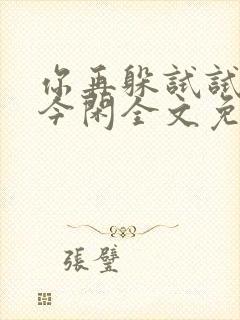 你再躲试试
今闲全文免
張璧